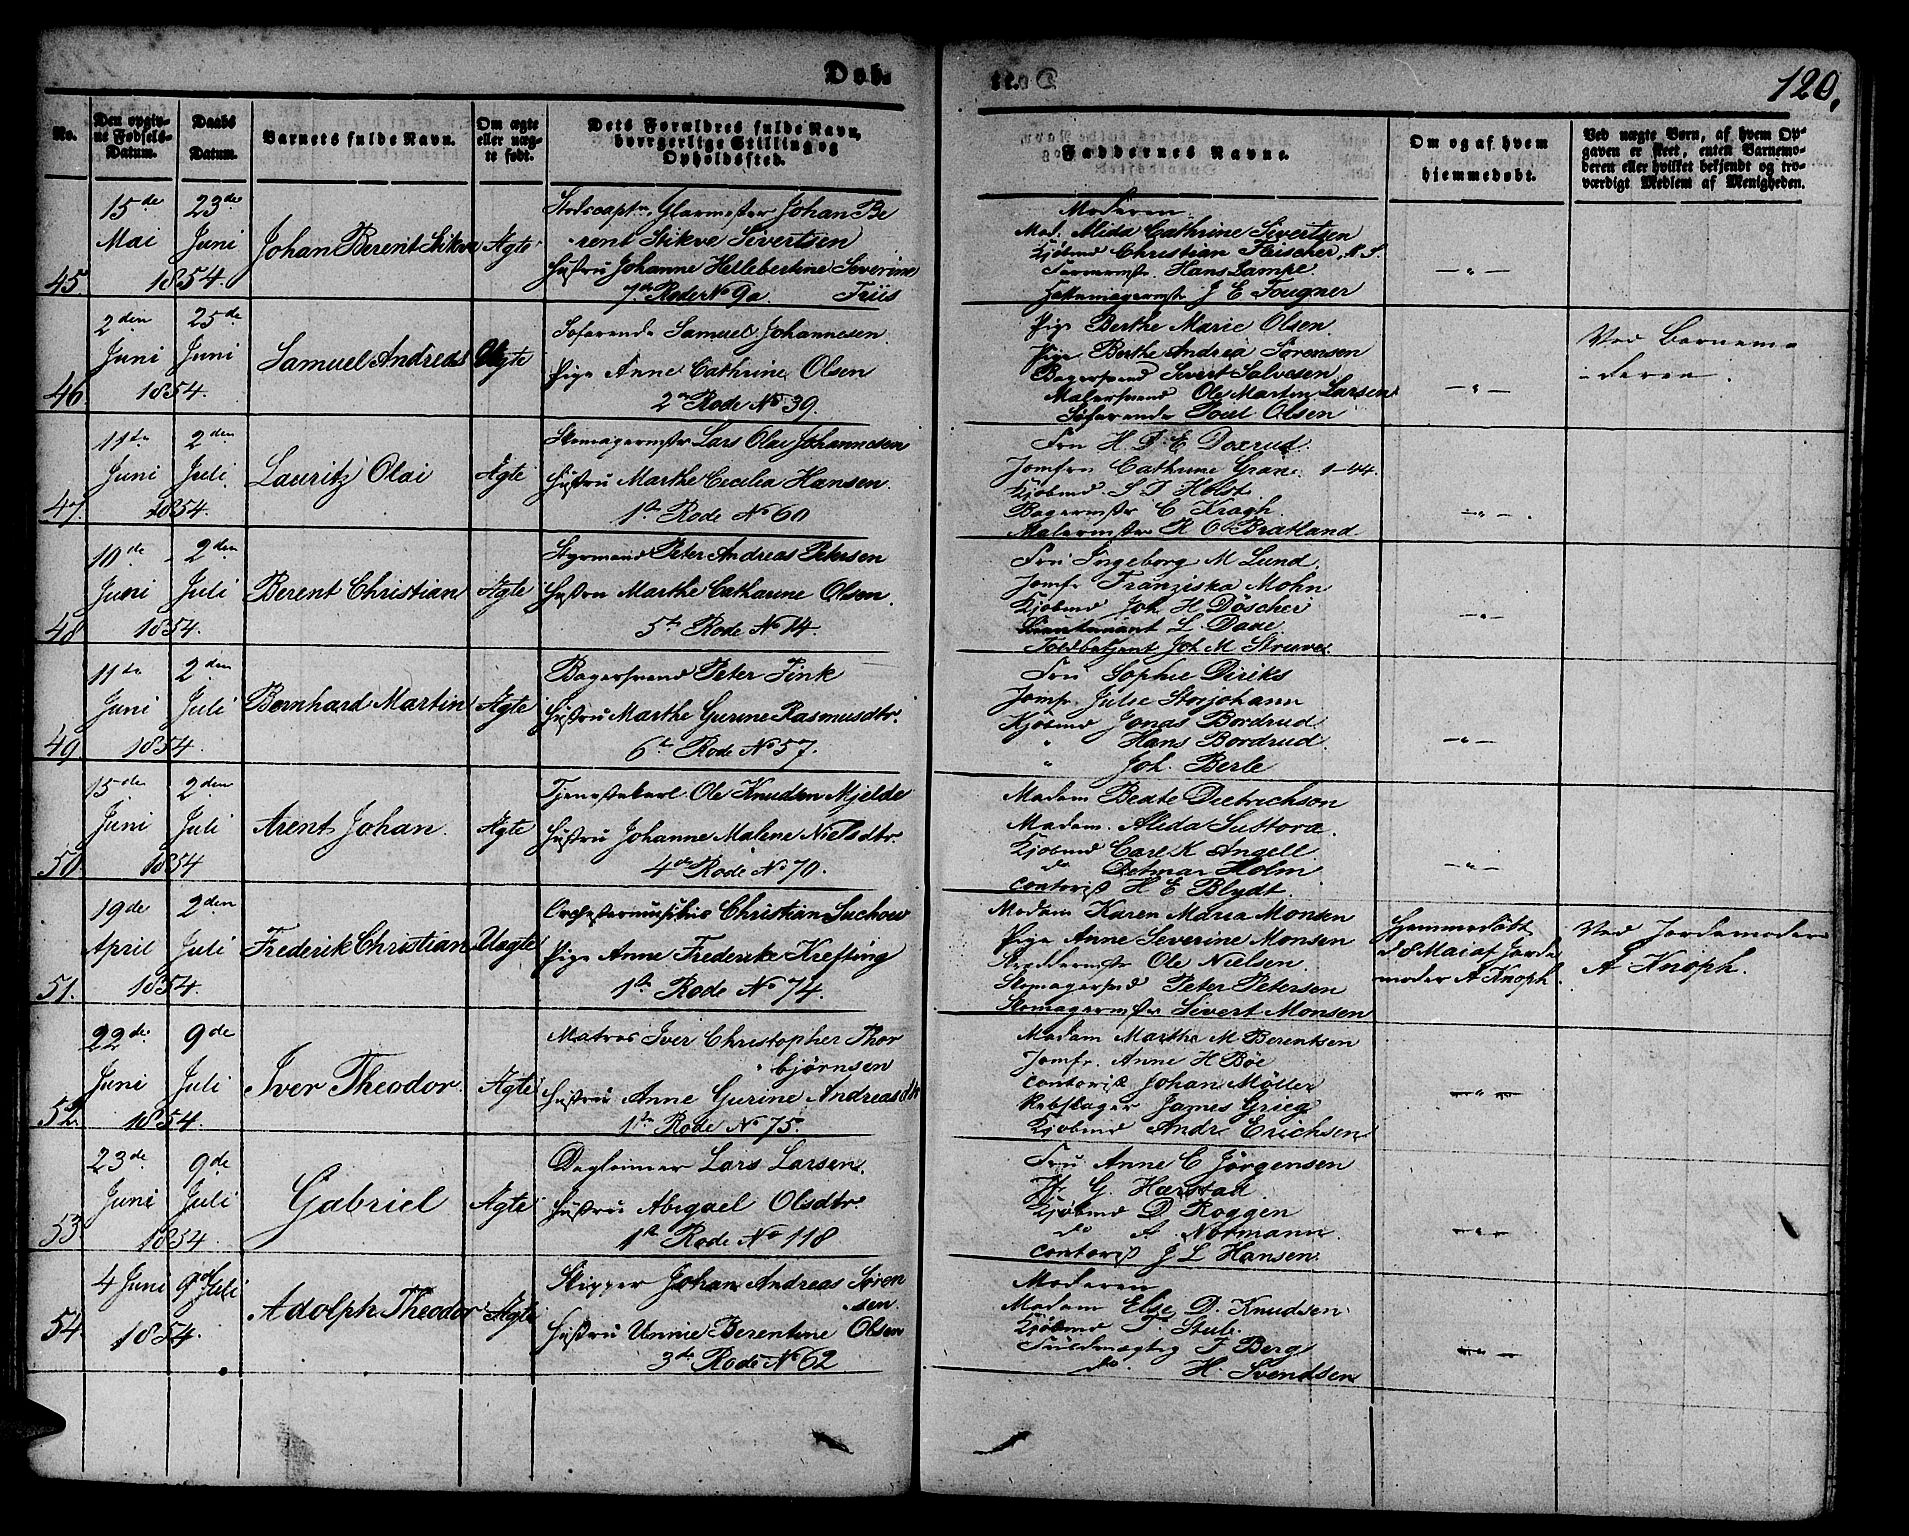 Døb.
120.
No.
Den opgivne Fødsels-Datum.
Daabs Datum.
Barnets fulde Navn.
Om ægte eller uægte født.
Dets Forældres fulde Navn, borgerlige Stilling og Opholdssted.
Faddernes Navne.
Om og af hvem hjemmedøbt.
Ved uægte Børn, af hvem Opgaven er skeet, enten Barnemoderen eller hvilket bekjendt og troværdigt Medlem af Menigheden.
45.
15de Mai
23de Juni
1854.
Johan Berent Stikve
Ægte
Glarmester Johan Be
rent Stikve Sivertsen
Hustru Johanne Hellebertine Severine
7de Rode No 9a. Friis
Moderen.
Mad. Alida Cathrine Sivertsen
Kjøbmd Christian Fleischer
Hans Lampe
J E Fougner
— " —
46.
2den Juni
25de Juni
1854.
Samuel Andreas
Uægte
Søfarende Samuel Johannesen.
Pige Anne Cathrine Olsen
2den Rode No 39.
Pige Berthe Marie Olsen.
Pige Berthe Andrea Sørensen
Bagersvend Sivert Salvesen
Malersvend Ole Martin Larsen
Søfarende Poul Olsen
— " —
Ved Barnemo-
deren.
47.
11te Juni
2den Juli
1854.
Lauritz Olai
Ægte
Skomagermstr Lars Olai Johannesen
Hustru Marthe Cecilia Hansen.
1ste Rode No 60
Fru H. D. E. Doxrud.
Jomfru Cathrine Grane. 1-44.
Kjøbmd. S D Holst
Bagermstr C Kragh.
Malermster R O Bratland
— " —
48.
10de Juni
2den Juli
1854.
Berent Christian
Ægte
Styrmand Peter Andreas Petersen
Hustru Marthe Catharine Olsen.
5te Rode No 14.
Fru Ingeborg M Lund.
Jomfr Franziska Mohn
Kjøbmd Joh. H. Döscher
Lieutenant L. Daae
Toldbetjent Joh M Struve
— " —
49.
11te Juni
2den Juli
1854.
Bernhard Martin
Ægte
Bagersvend Peter Fink
Hustru Marthe Gurine Rasmusdtr.
6te Rode No 57.
Fru Sophie Diriks
Jomf. Julie Storjohann
Kjøbmd Jonas Bordrud
" Hans Bordrud.
" Joh. Berle
— " —
50.
15de Juni
2den Juli
1854
Arent Johan.
Ægte
Tjenestekarl Ole Knudsen Mjelde
Hustru Johanne Malene Nielsdtr.
4de Rode No 70.
Madam Beate Dietrichson
Madam. Alida Sustora.
Kjøbmd Carl K Angell.
do Detmar Holm
Contorist H E Blydt.
— " —
51.
19de April
2den Juli
1854.
Frederik Christian
Uægte
Christian Suchow
Pige Anne Frederikke Krefting
1ste Rode No 74.
Madam Karen Maria Monsen
Pige Anne Severine Monsen
Ole Nielsen.
Skomagersvd Peter Petersen
Skomagermster Sivert Monsen
Hjemmedøbt
d 8 Mai af Jorde
moder A Knoph.
Ved Jordemoder
A Knoph.
52.
22de Juni
9de Juli
1854.
Iver Theodor.
Ægte
Matros Iver Christopher Thor
bjørnsen
Hustru Anne Gurine Andreasdtr
1ste Rode No 75.
Madam Marthe M Berentsen
Jomfr. Anne H Bøe
Contorist Johan Möller
Rebslager James Grieg
Kjøbmd Andr Erichsen
— " —
53
23de Juni
9de Juli
1854.
Gabriel
Ægte
Dagleiner Lars Larsen.
Hustru Abigael Olsdtr.
1ste Rode No 118
Fru Anne C Jörgensen
Jfr G. Harstad.
Kjøbmd D. Roggen
do A. Normann
Contorist J L Hansen.
— " —
54
4 Juni
9de Juli
1854.
Adolph Theodor
Ægte
Skipper Johan Andreas Søren
sen.
Hustru Unnie Berentine Olsen
3die Rode No 62
Moderen
Madam Else D. Knudsen
Kjøbmd T. Stub.
Fuldmægtig F Berg
do. H. Svendsen
— " —